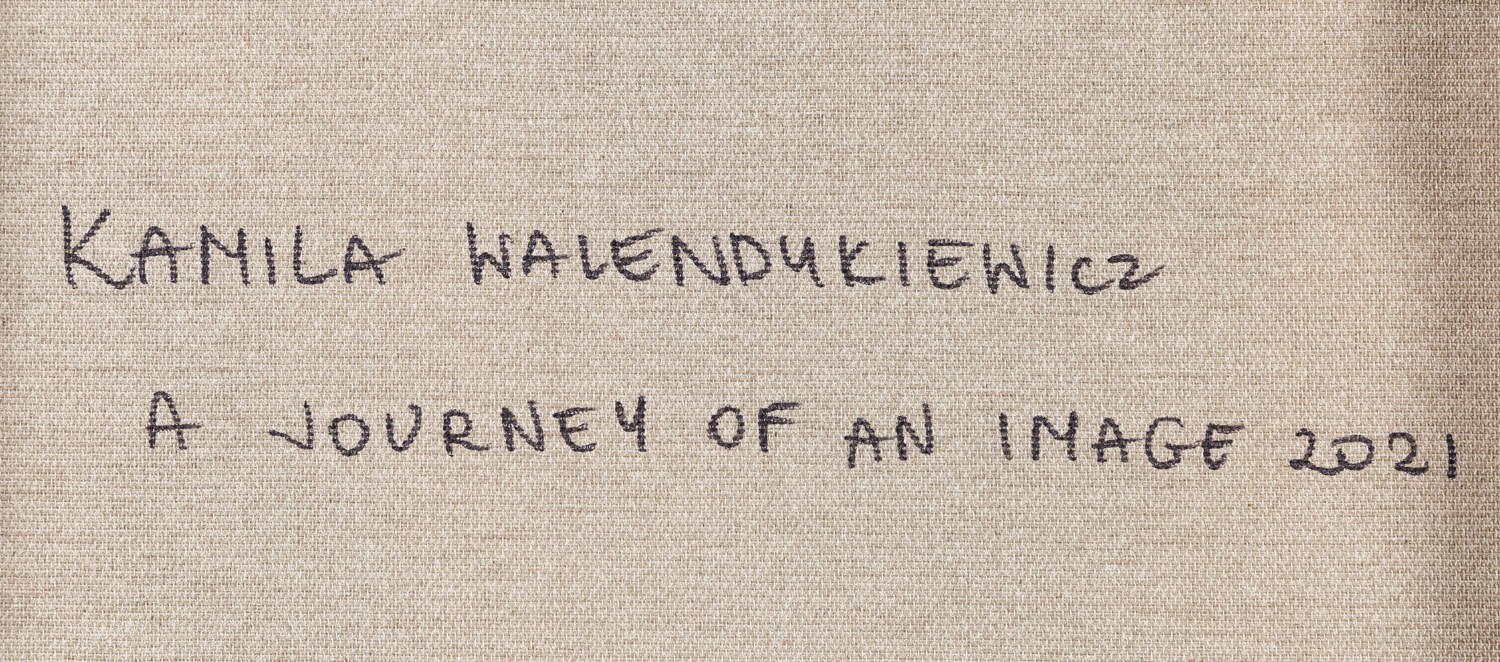 KAMILA WALENDYKIEWICZ
A JOURNEY OF AN IMAGE 2021